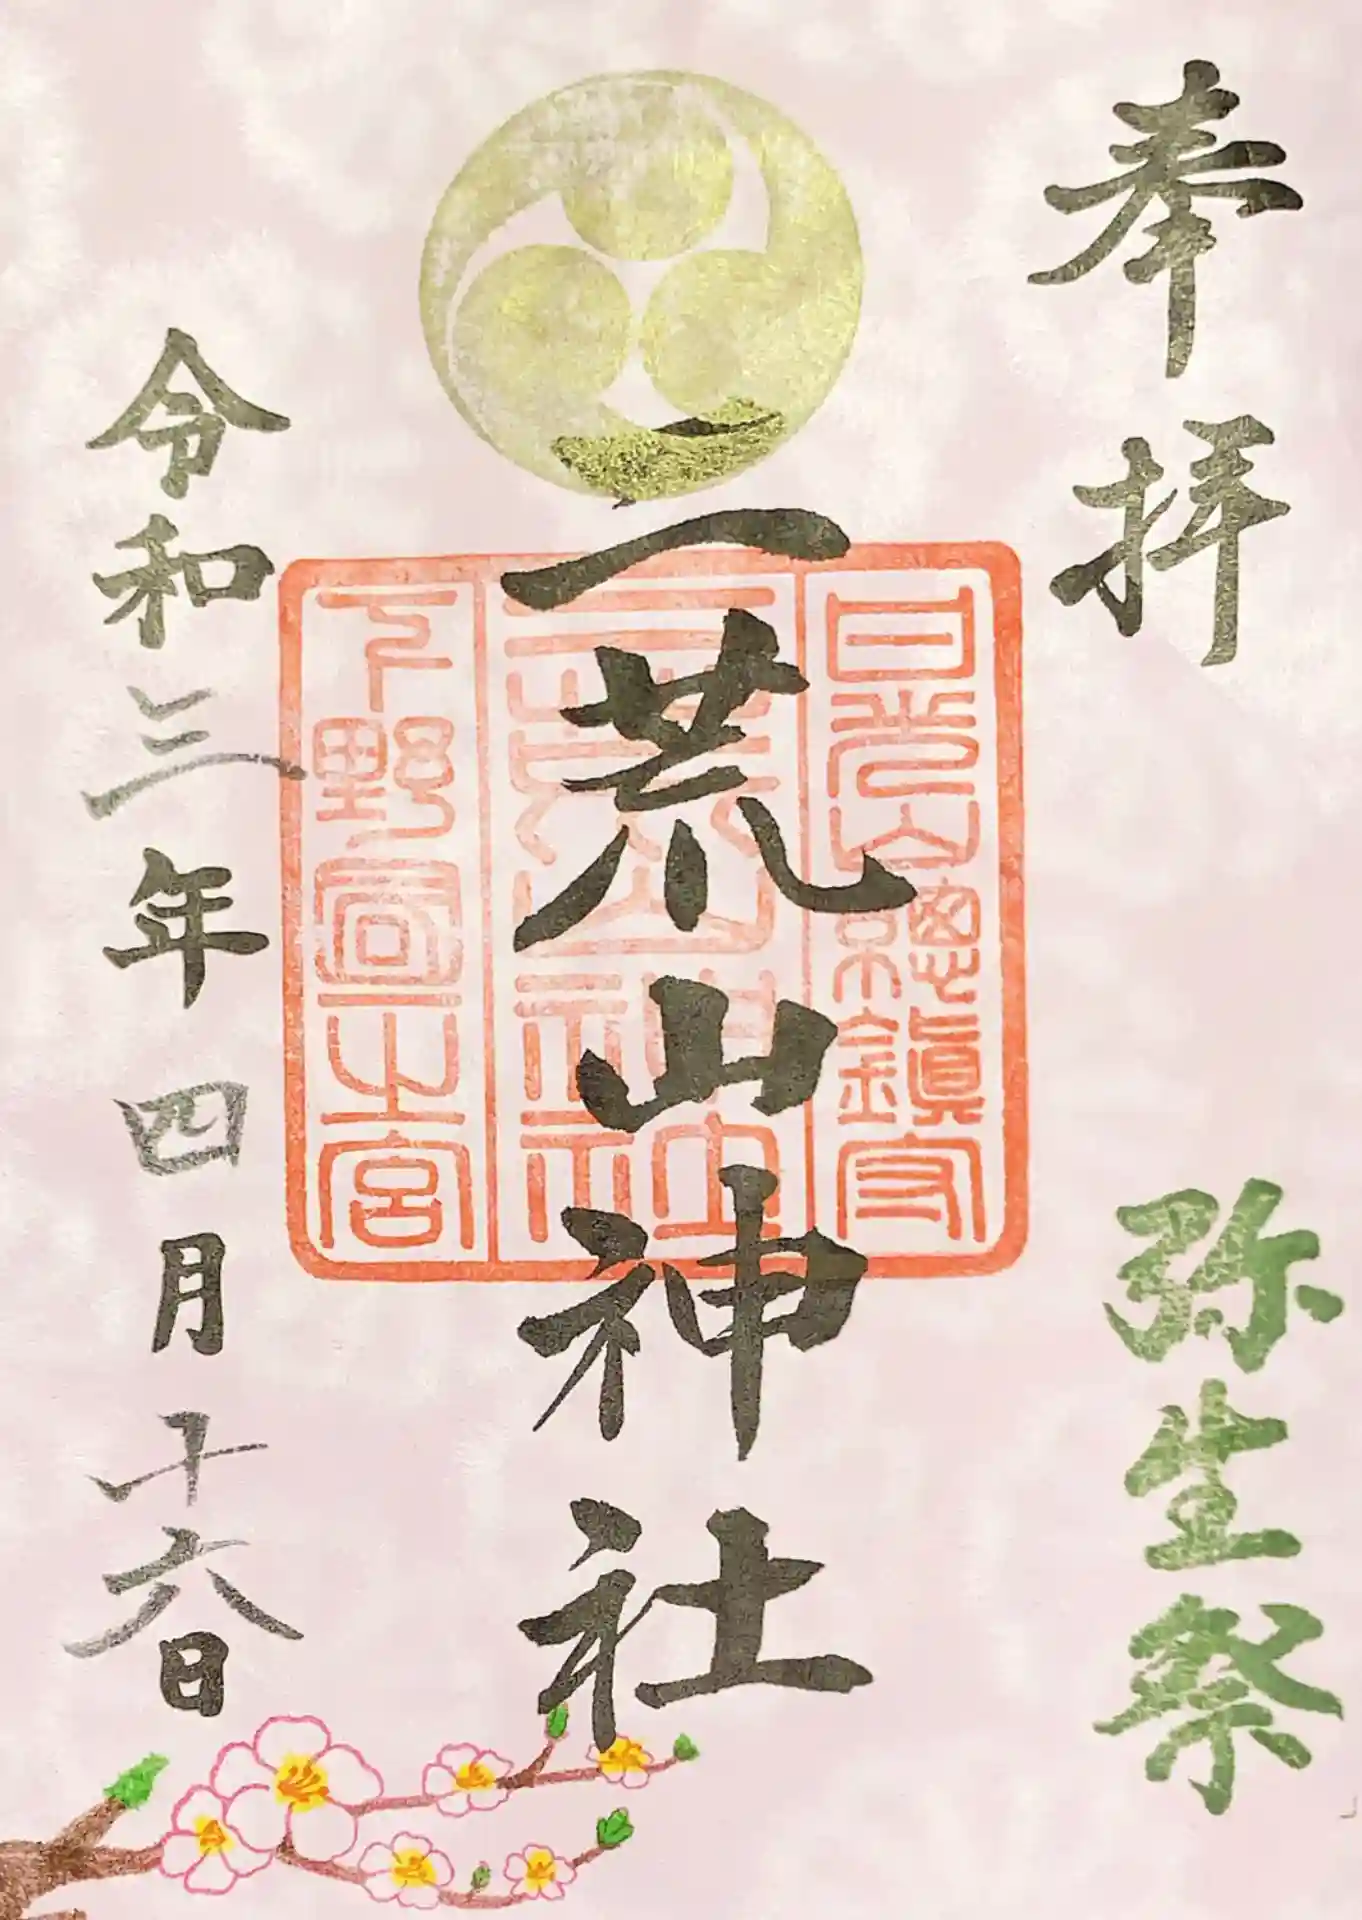 奉拝
弥生祭
日光山總鎮守
二荒山神社
下野國一之宮
二荒山神社
令和三年四月十六日